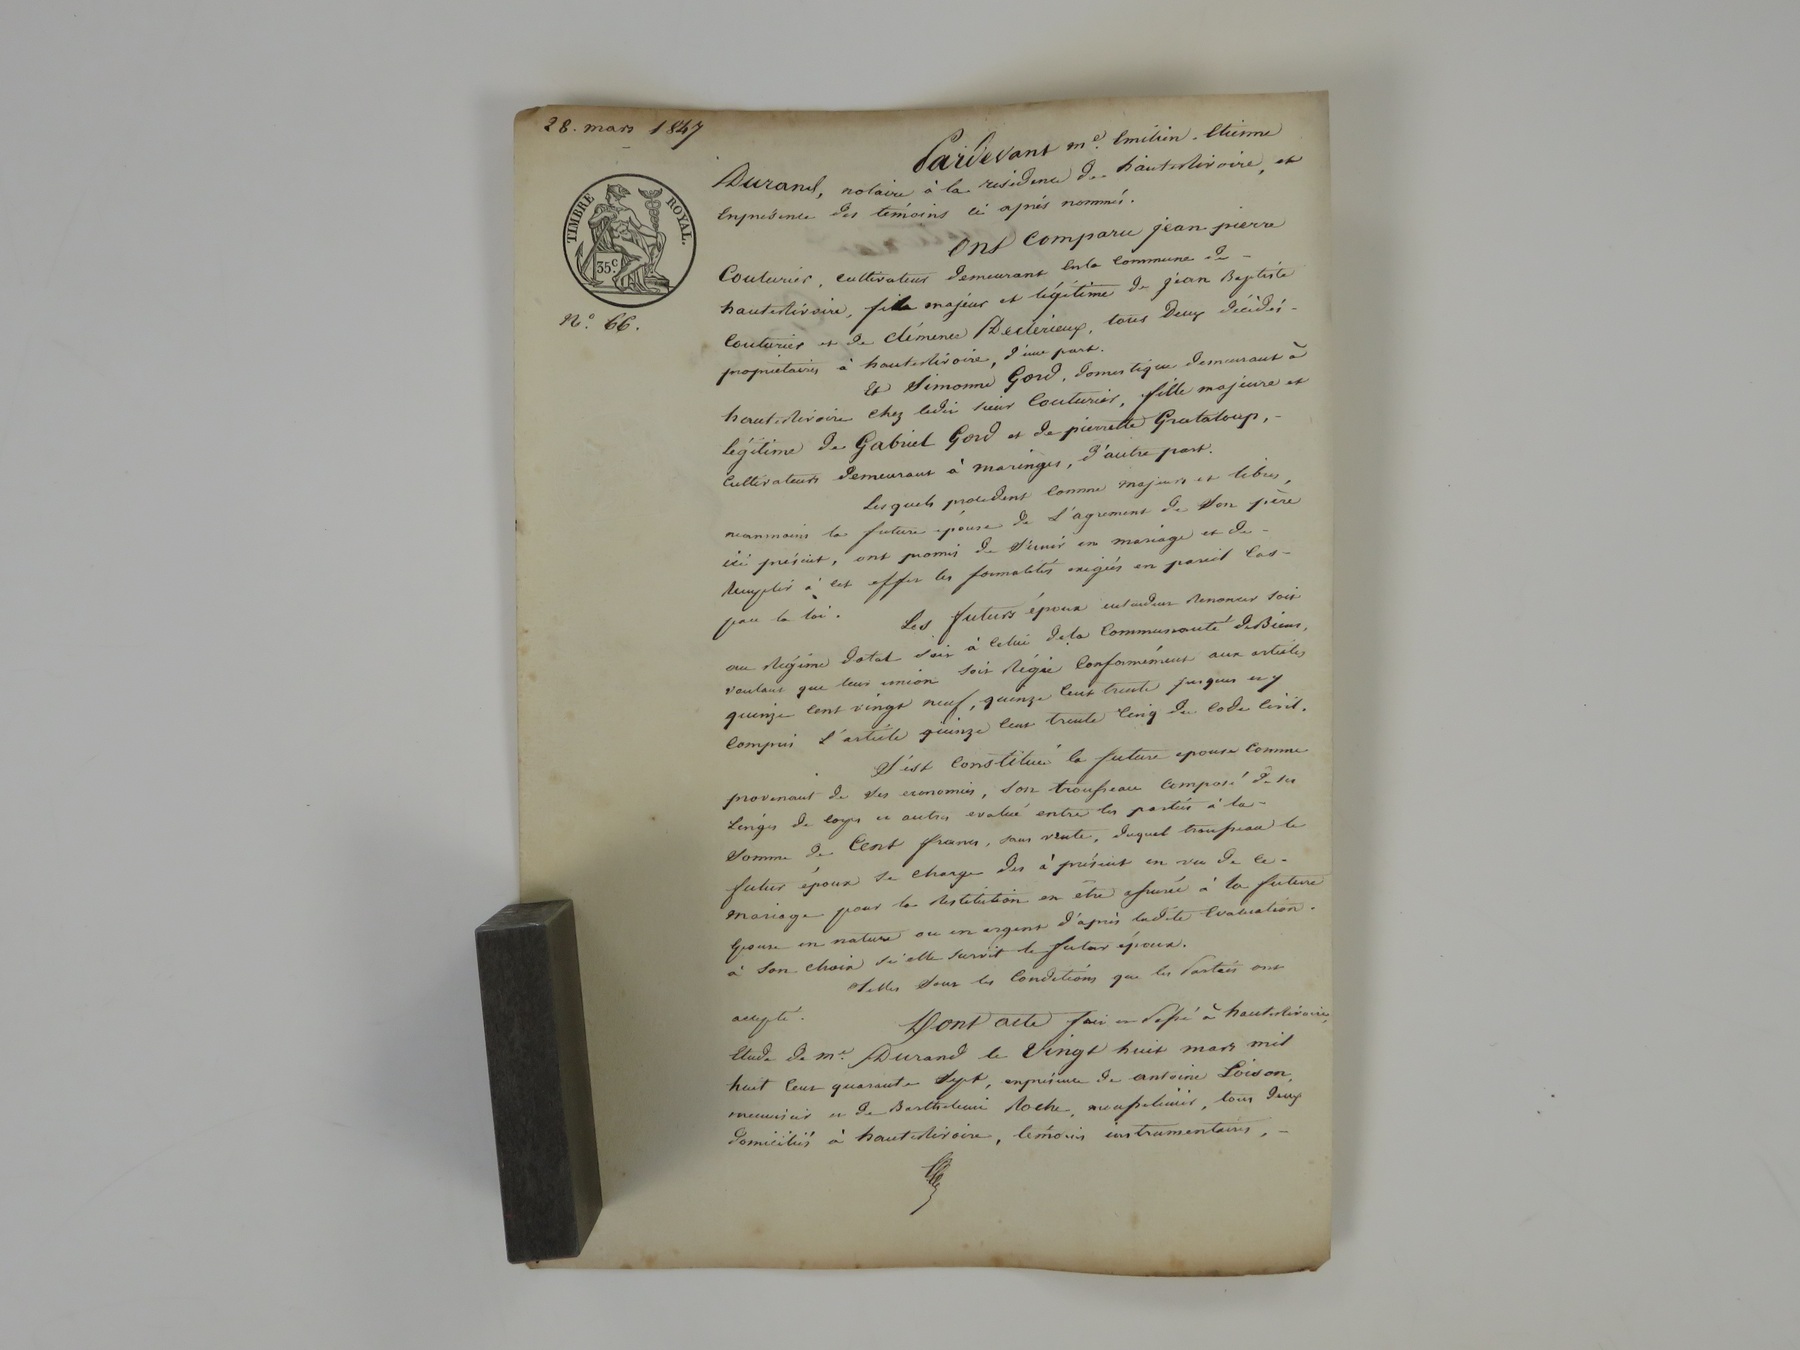 28. mars 1847
Pardevant me. Emilien-Etienne
Durand, notaire à la residence de hauterivoire, et
Enprésence des témoins ci après nommés.
TIMBRE ROYAL.
35c.
No. 66.
Ont comparu jean pierre
Couturier, cultivateur demeurant Enla Commune de -
hauterivoire, fils majeur et légitime de jean Baptiste
Couturier et de Clémence Desclérieux, tous Deux décédés -
propriétaires à hauterivoire, d'une part.
Et Simonne Gord, domestique demeurant à
hauterivoire chez ledit sieur Couturier, fille majeure et
légitime de Gabriel Gord et de pierrette Grataloup, -
Cultivateurs demeurant à maringes, d'autre part.
Lesquels procèdent Comme majeurs et libres,
neanmoins la future épouse de L'agrement de Son père
ici présent, ont promis de S'unir en mariage et de -
Remplir à cet effet les formalités exigées en pareil Cas -
par la loi.
Les futurs époux entendent Renoncer soit
au Régime Dotal soit à Celui dela Communauté de Biens,
voulant que leur union soit Régie Conformément aux articles
quinze Cent vingt neuf, quinze Cent trente jusques et y
Compris L'article quinze Cent trente Cinq du Code Civil.
S'est Constitué la future epouse Comme
provenant de Ses economies, Son trousseau Composé de ses
Linges de corps et autres evalué entre les parties à la -
Somme de Cent francs, sans vente, duquel trousseau le
futur époux se charge des à présent en vue de ce -
mariage pour la Restitution en être assurée à la future
Epouse en nature ou en argent d'après ladite Evaluation.
à Son choix si elle survit le futur époux.
Telles Sont les Conditions que les Parties ont
accepté.
Dont acte fait et Passé à hauterivoire,
Etude de me. Durand le Vingt huit mars mil
huit Cent quarante Sept, enprésence de antoine Loison,
menuisier et de Barthelemi Roche, , tous Deux
domiciliés à hauterivoire, témoins instrumentaires, -